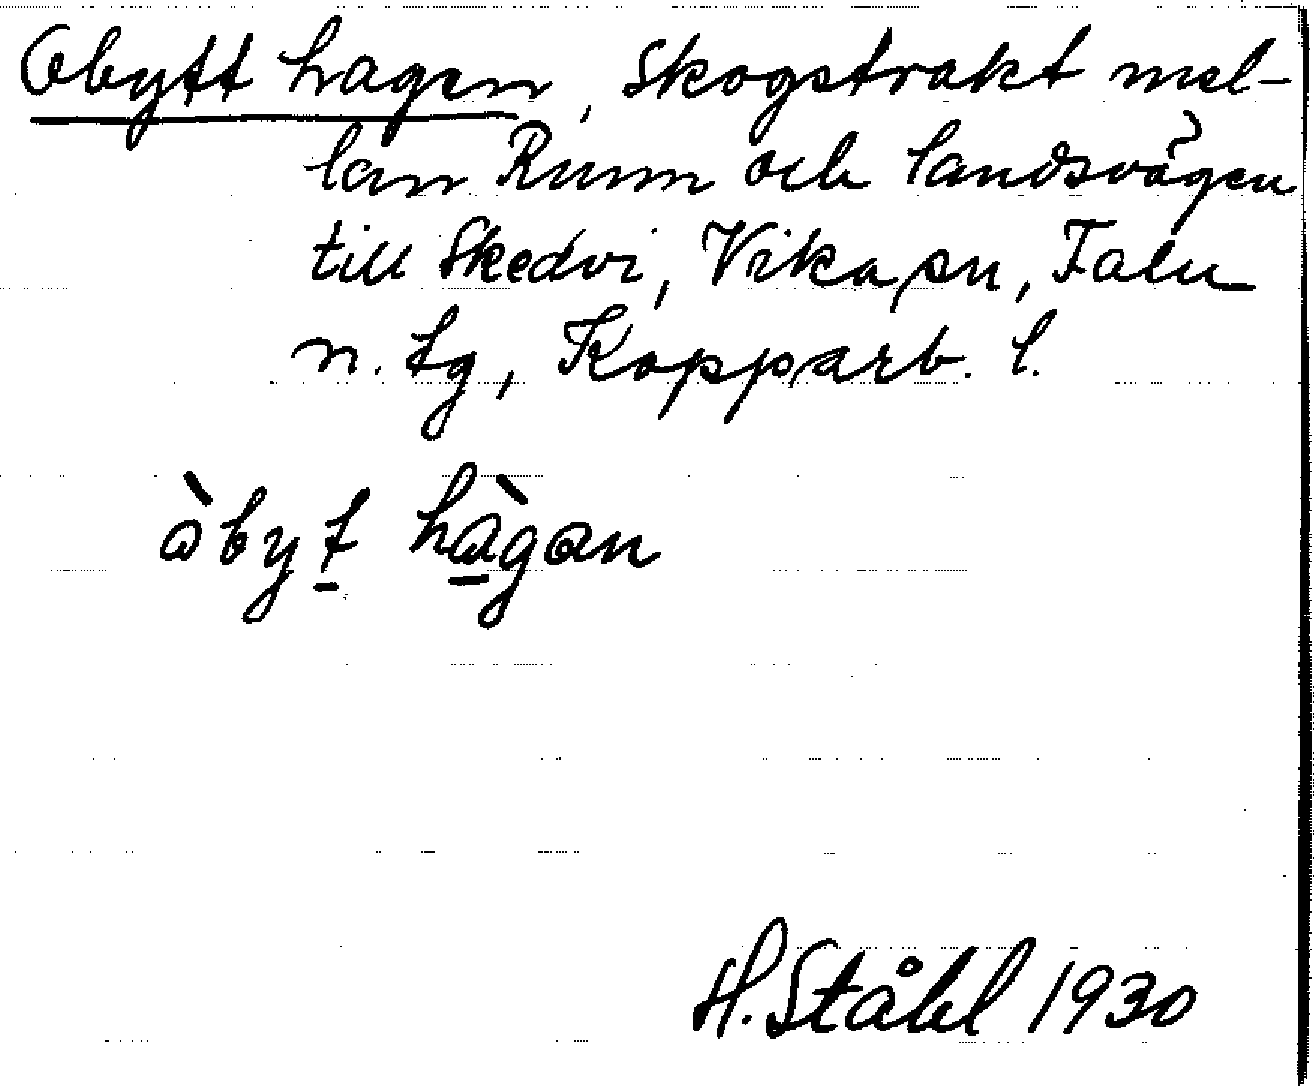 Obytt hagen, Skogstrakt mel-
lan Runn och landsvägen
till Skedvi, Vika sn, Falu
n. tg, Kopparb. l.
òbyt hàgan
H. Ståhl 1930